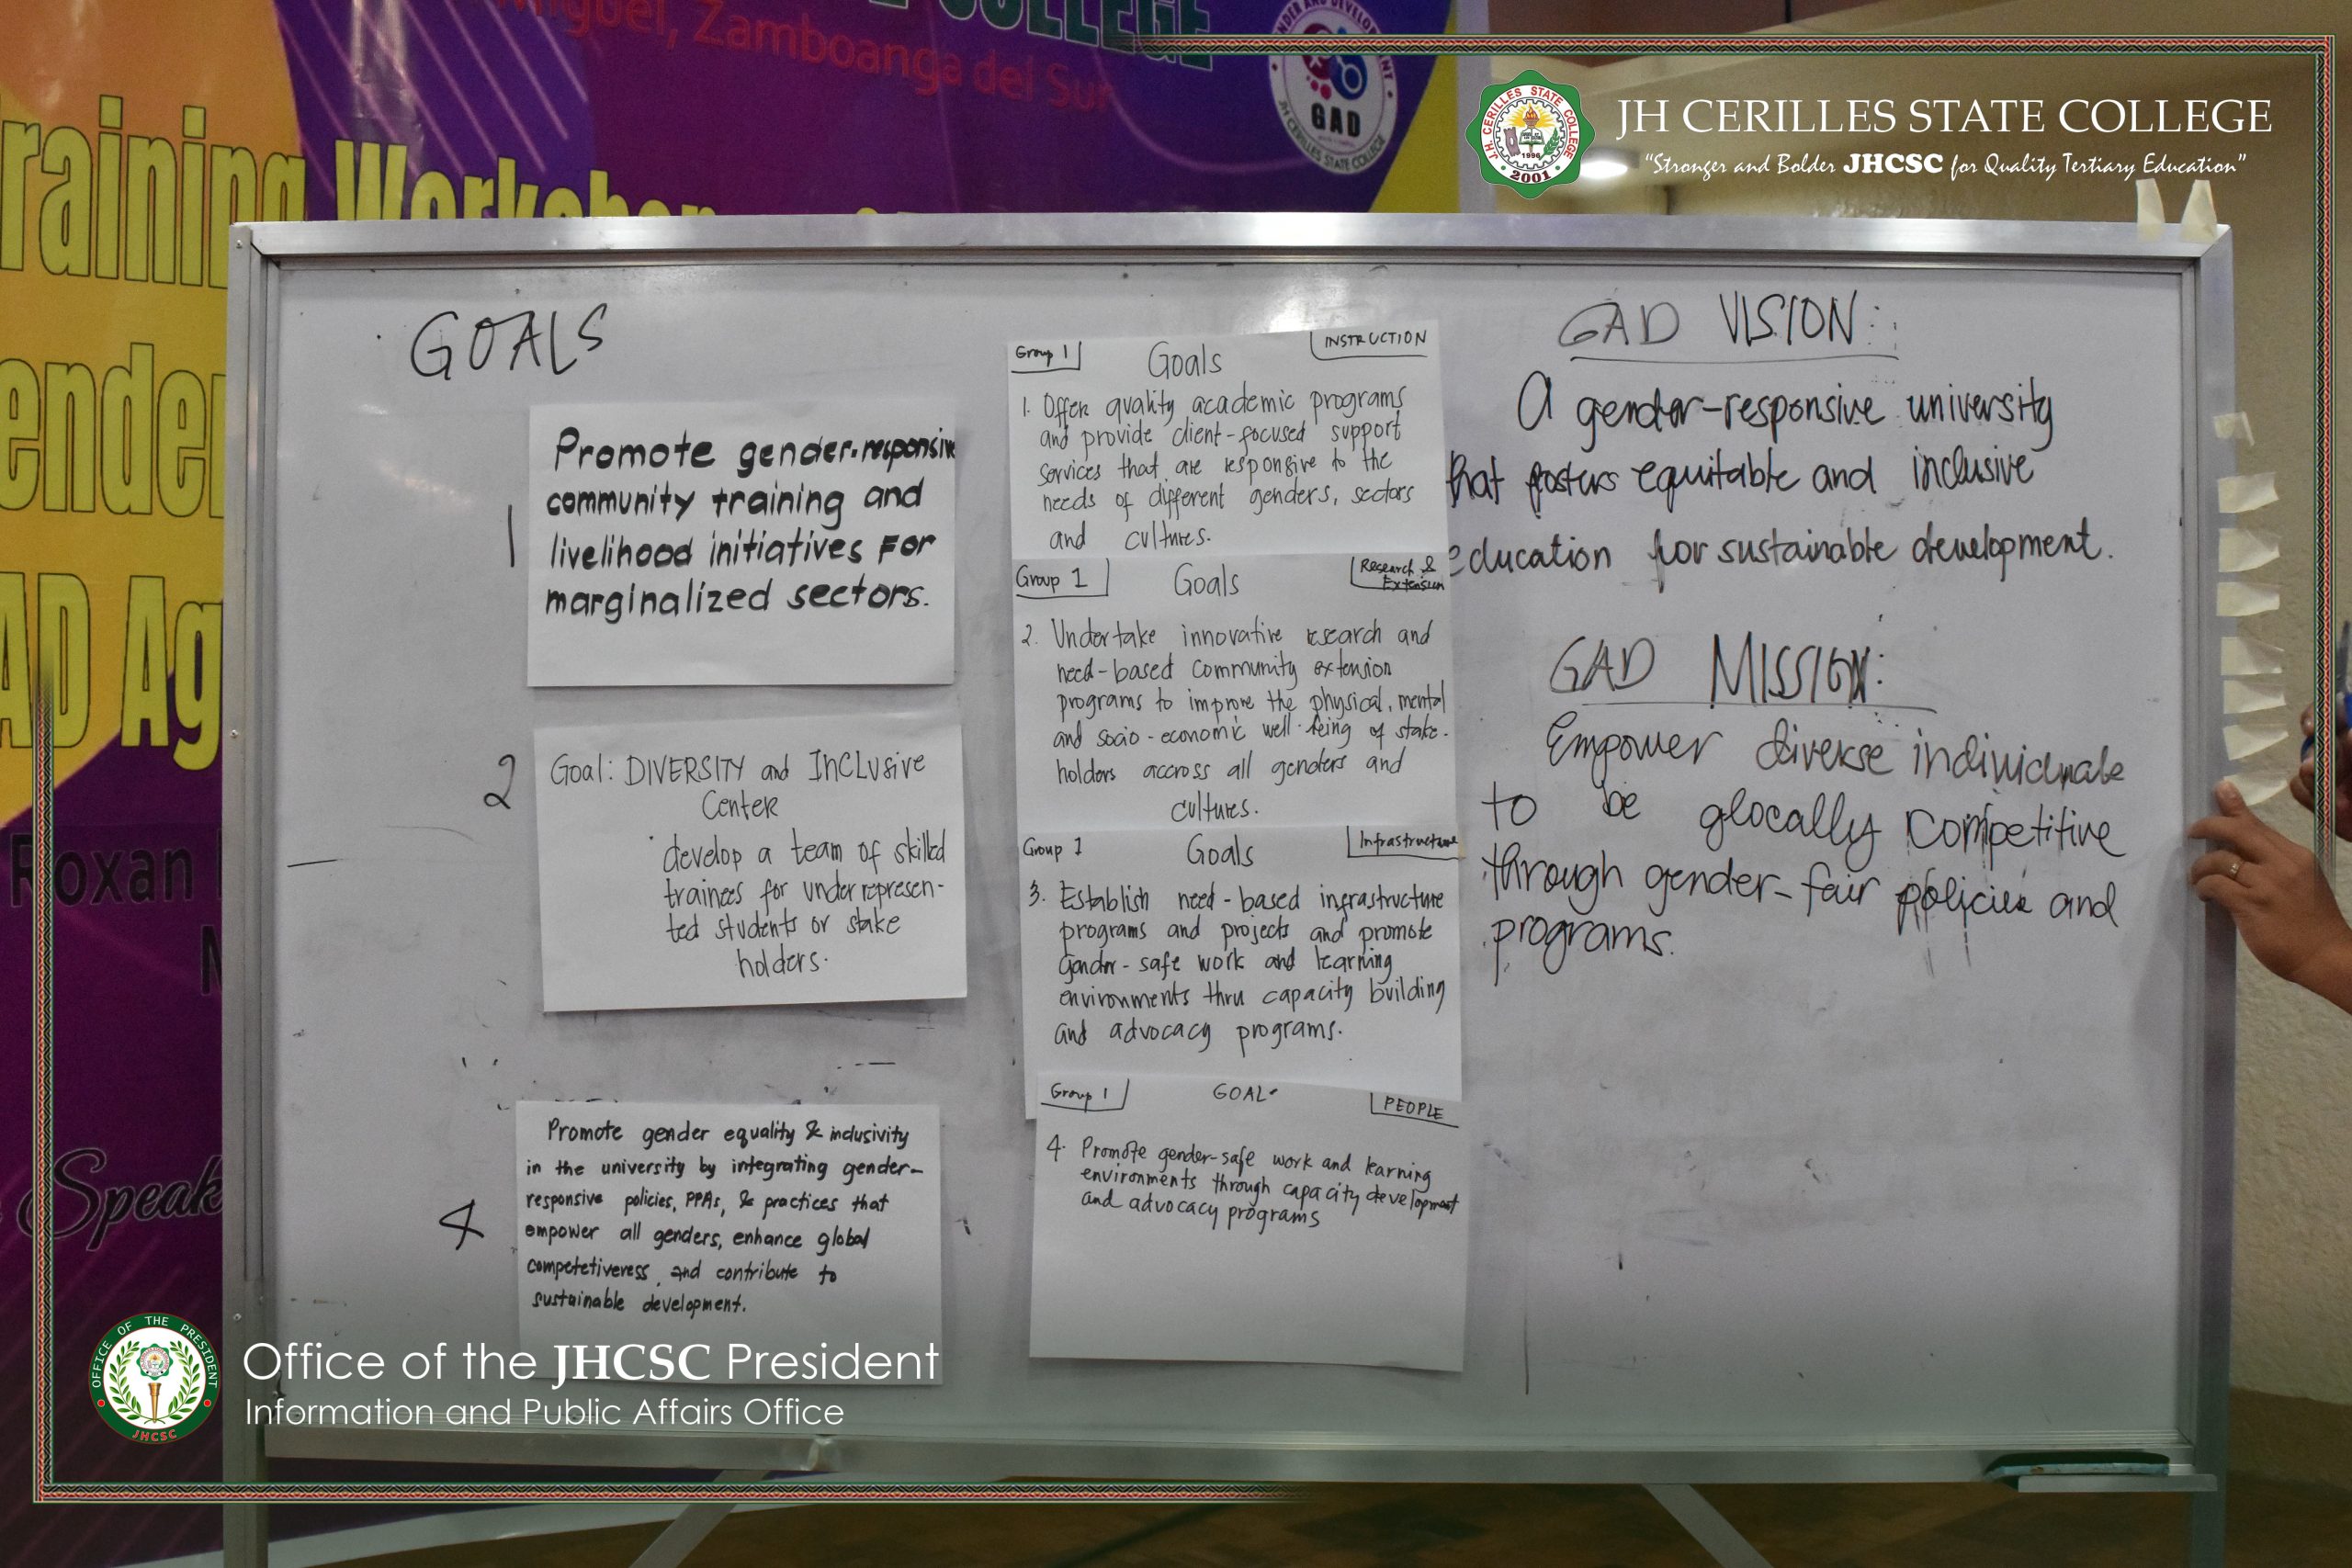 COLLEGE
Miguel, Zamboanga del Sur
GENDER AND DEVELOPMENT
GAD
JH CERILLES STATE COLLEGE
raining Workshop
ender
AD Ag
Roxan
Speak
J.H. CERILLES STATE COLLEGE
1996
2001
JH CERILLES STATE COLLEGE
"Stronger and Bolder JHCSC for Quality Tertiary Education"
GOALS
1
Promote gender-responsive
community training and
livelihood initiatives for
marginalized sectors.
2
Goal: DIVERSITY and INCLUSIVE
Center
• develop a team of skilled
trainees for underrepresen-
ted students or stake
holders.
4
Promote gender equality & inclusivity
in the university by integrating gender-
responsive policies, PPAs, & practices that
empower all genders, enhance global
competetiveness, and contribute to
sustainable development.
Group 1 Goals INSTRUCTION
1. Offer quality academic programs
and provide client-focused support
services that are responsive to the
needs of different genders, sectors
and cultures.
Group 1 Goals Research & Extension
2. Undertake innovative research and
need-based community extension
programs to improve the physical, mental
and socio-economic well-being of stake-
holders accross all genders and
cultures.
Group 1 Goals Infrastructure
3. Establish need-based infrastructure
programs and projects and promote
gender-safe work and learning
environments thru capacity building
and advocacy programs.
Group 1 GOAL PEOPLE
4. Promote gender-safe work and learning
environments through capacity development
and advocacy programs
GAD VISION:
A gender-responsive university
that fosters equitable and inclusive
education for sustainable development.
GAD MISSION:
Empower diverse individuals
to be glocally competitive
through gender-fair policies and
programs.
OFFICE OF THE PRESIDENT
JHCSC
Office of the JHCSC President
Information and Public Affairs Office